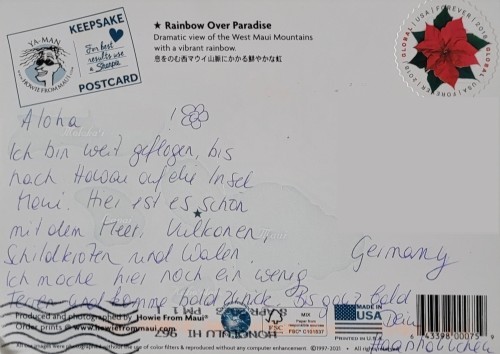 KEEPSAKE
YA-MAN
For best
results use
a Sharpie
WWW.HOWIEFROMMAUI.COM
POSTCARD
★ Rainbow Over Paradise
Dramatic view of the West Maui Mountains
with a vibrant rainbow.
息をのむ西マウイ山脈にかかる鮮やかな虹
GLOBAL USA FOREVER 2018
Aloha !
Ich bin weit geflogen, bis
nach Hawaii auf die Insel
Maui. Hier ist es schön
mit dem Meer, Vulkanen,
Schildkröten und Walen.
Ich mache hier noch ein wenig
Ferien und komme bald zurück. Bis ganz bald
Dein
Germany
Produced and photographed by Howie From Maui®
Order prints @ www.howiefrommaui.com
HONOLULU HI 967
PM 1
FSC
MIX
Paper from
responsible sources
FSC® C101537
MADE IN
USA
43398 00075
All images appear here exactly as photographed without the use of color enhancing filters. Reproduced without any computer enhancement. ©1997-2021